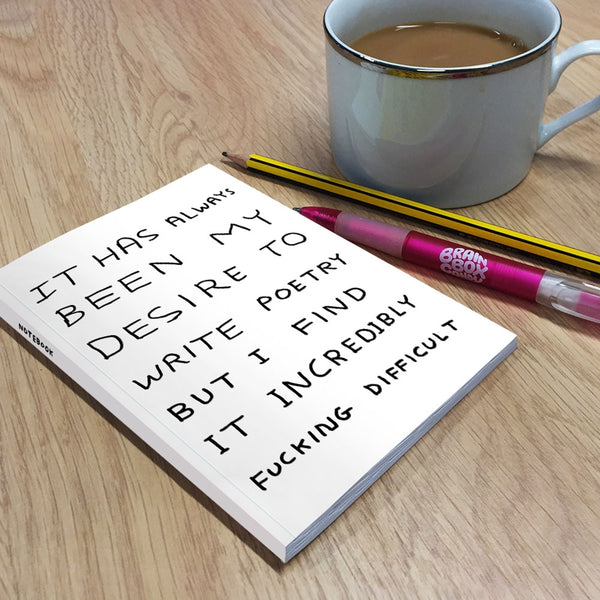 IT HAS ALWAYS
BEEN MY
DESIRE TO
WRITE POETRY
BUT I FIND
IT INCREDIBLY
FUCKING DIFFICULT
NOTEBOOK
BRAIN
BOX
CANDY